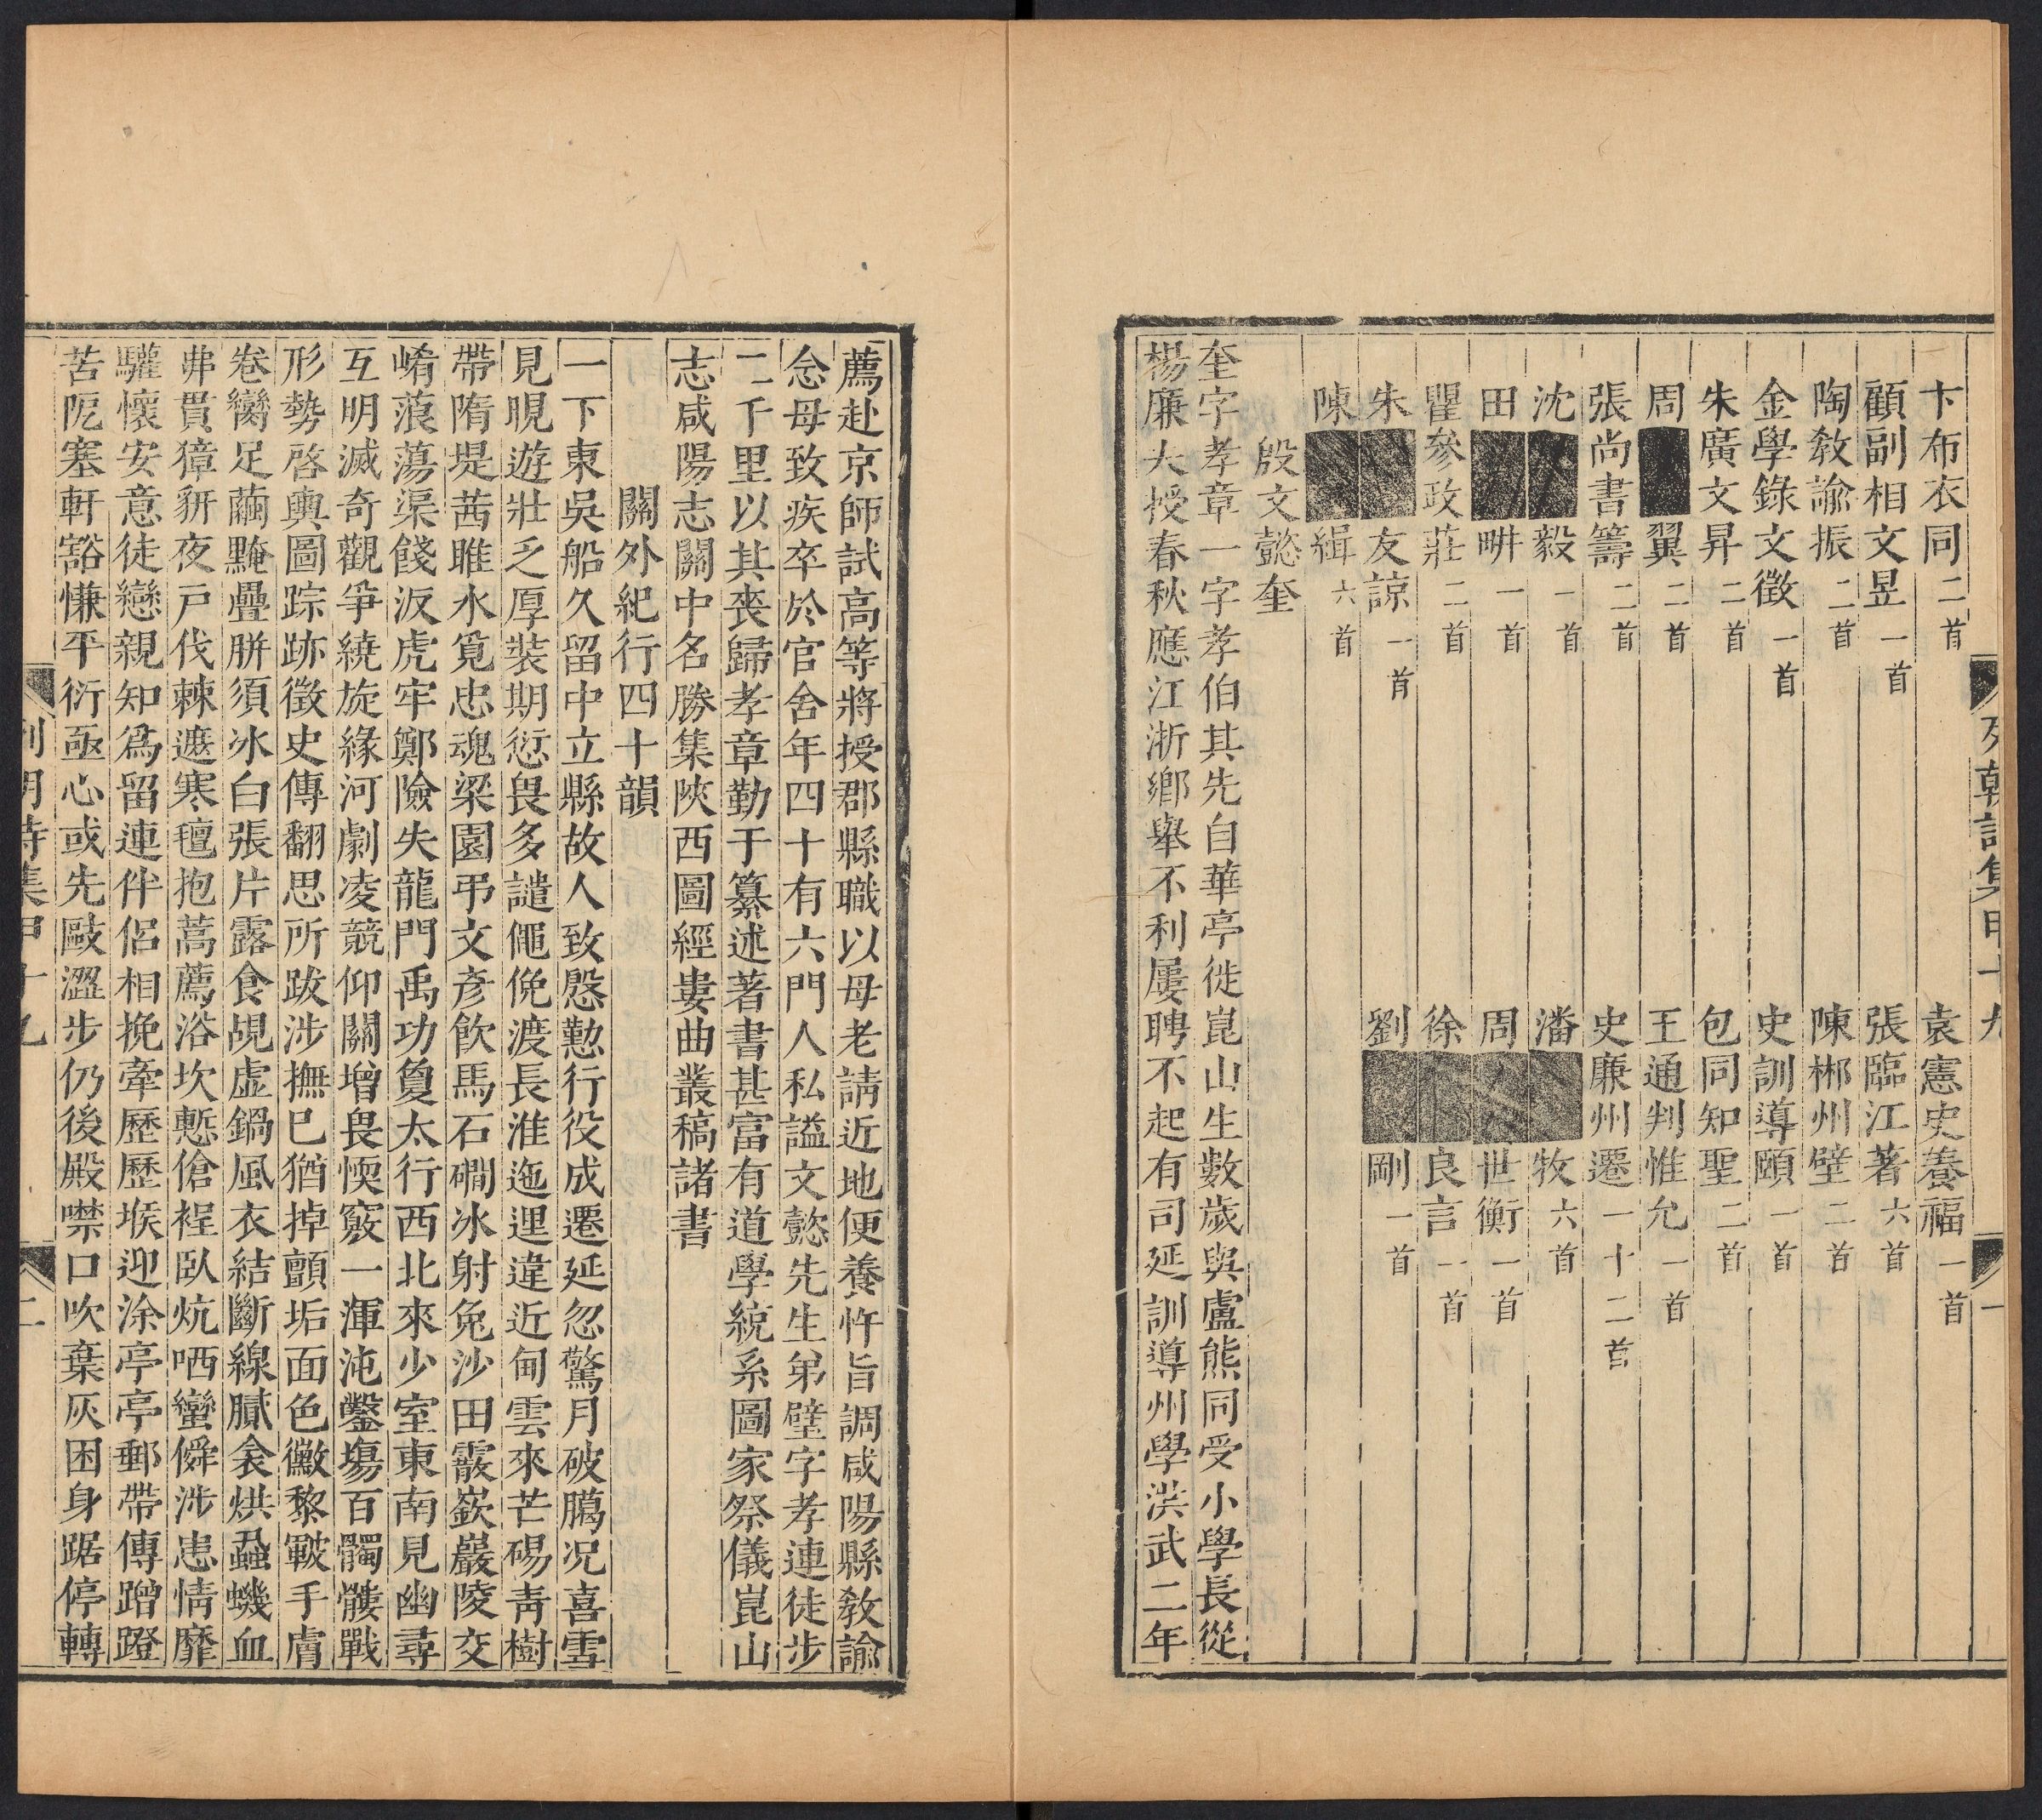 卞布衣同二首　袁憲史養福一首
顧副相文昱一首　張臨江著六首
陶敎諭振二首　陳郴州璧二首
金學錄文徵一首　史訓導頤一首
朱廣文昇二首　包同知聖二首
周■翼二首　王通判惟允一首
張尚書籌二首　史廉州遷一十二首
沈■毅一首　潘■牧六首
田■畊一首　周■世衡一首
瞿參政莊二首　徐■良言一首
朱■友諒一首　劉■剛一首
陳■緝六首
殷文懿奎
奎字孝章一字孝伯其先自華亭徙崑山生數歲與盧熊同受小學長從
楊廉夫授春秋應江浙鄉舉不利屢聘不起有司延訓導州學洪武二年
薦赴京師試高等將授郡縣職以母老請近地便養忤旨調咸陽縣敎諭
念母致疾卒於官舍年四十有六門人私謚文懿先生弟璧字孝連徒步
二千里以其喪歸孝章勤于纂述著書甚富有道學統系圖家祭儀崑山
志咸陽志關中名勝集陝西圖經婁曲叢稿諸書
關外紀行四十韻
一下東吳船久留中立縣故人致慇懃行役成遷延忽驚月破臈况喜雪
見晛遊壯乏厚裝期愆畏多譴僶俛渡長淮迤逦違近甸雲來芒碭靑樹
帶隋堤茜睢水覓忠魂梁園弔文彥飮馬石磵冰射兔沙田霰嶔巖陵交
崤蒗蕩渠餞汳虎牢鄭險失龍門禹功敻太行西北來少室東南見幽尋
互明滅奇觀爭繞旋緣河劇凌競仰關增畏愞竅一渾沌鑿塲百髑髏戰
形勢啓輿圖踪跡徵史傳翻思所跋涉撫已猶掉顫垢面色黴黎皸手膚
卷臠足繭黤疊胼須冰白張片露食覘虛鍋風衣結斷線膩衾烘蝨蟣血
弗貫獐豜夜戸伐棘遮寒氊抱蒿薦浴坎慙傖裎臥炕哂蠻僢涉恚情靡
驩懷安意徒戀親知爲留連伴侶相挽牽歷歷堠迎涂亭亭郵帶傳蹭蹬
苦阨塞軒豁慊平衍亟心或先敺澀步仍後殿噤口吹棄灰困身踞停轉